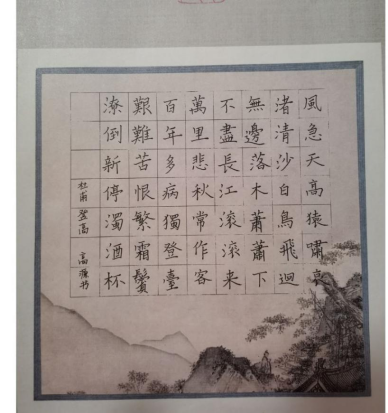 風急天高猿嘯哀
渚清沙白鳥飛迴
無邊落木蕭蕭下
不盡長江滚滚来
萬里悲秋常作客
百年多病獨登臺
艱難苦恨繁霜鬢
潦倒新停濁酒杯
杜甫登高